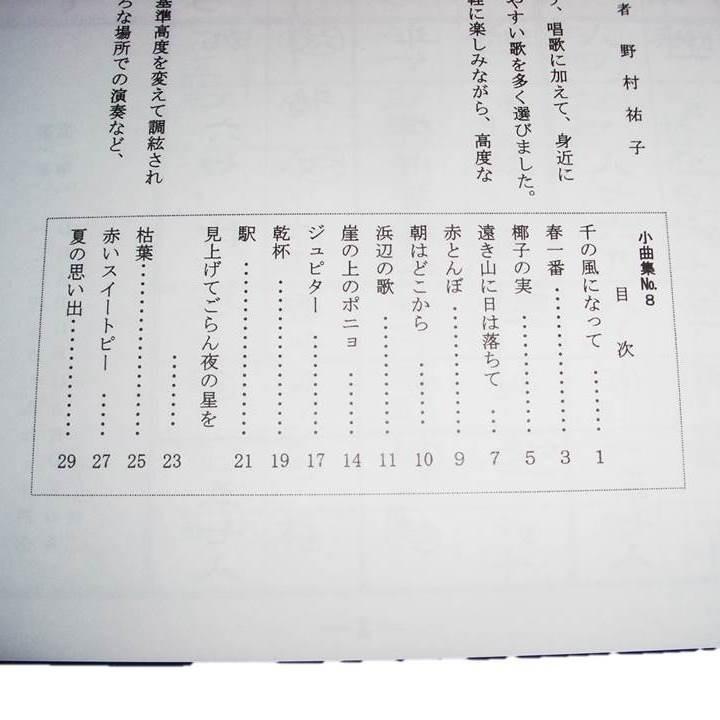 者 野村祐子
、唱歌に加えて、身近に
やすい歌を多く選びました。
軽に楽しみながら、高度な
基準高度を変えて調絃され
ろな場所での演奏など、
小曲集№8
目次
千の風になって ……… 1
春一番 ……………… 3
椰子の実 …………… 5
遠き山に日は落ちて … 7
赤とんぼ …………… 9
朝はどこから ……… 10
浜辺の歌 …………… 11
崖の上のポニョ …… 14
ジュピター ………… 17
乾杯 ………………… 19
駅 …………………… 21
見上げてごらん夜の星を
……… 23
枯葉 ………………… 25
赤いスイートピー … 27
夏の思い出 ………… 29